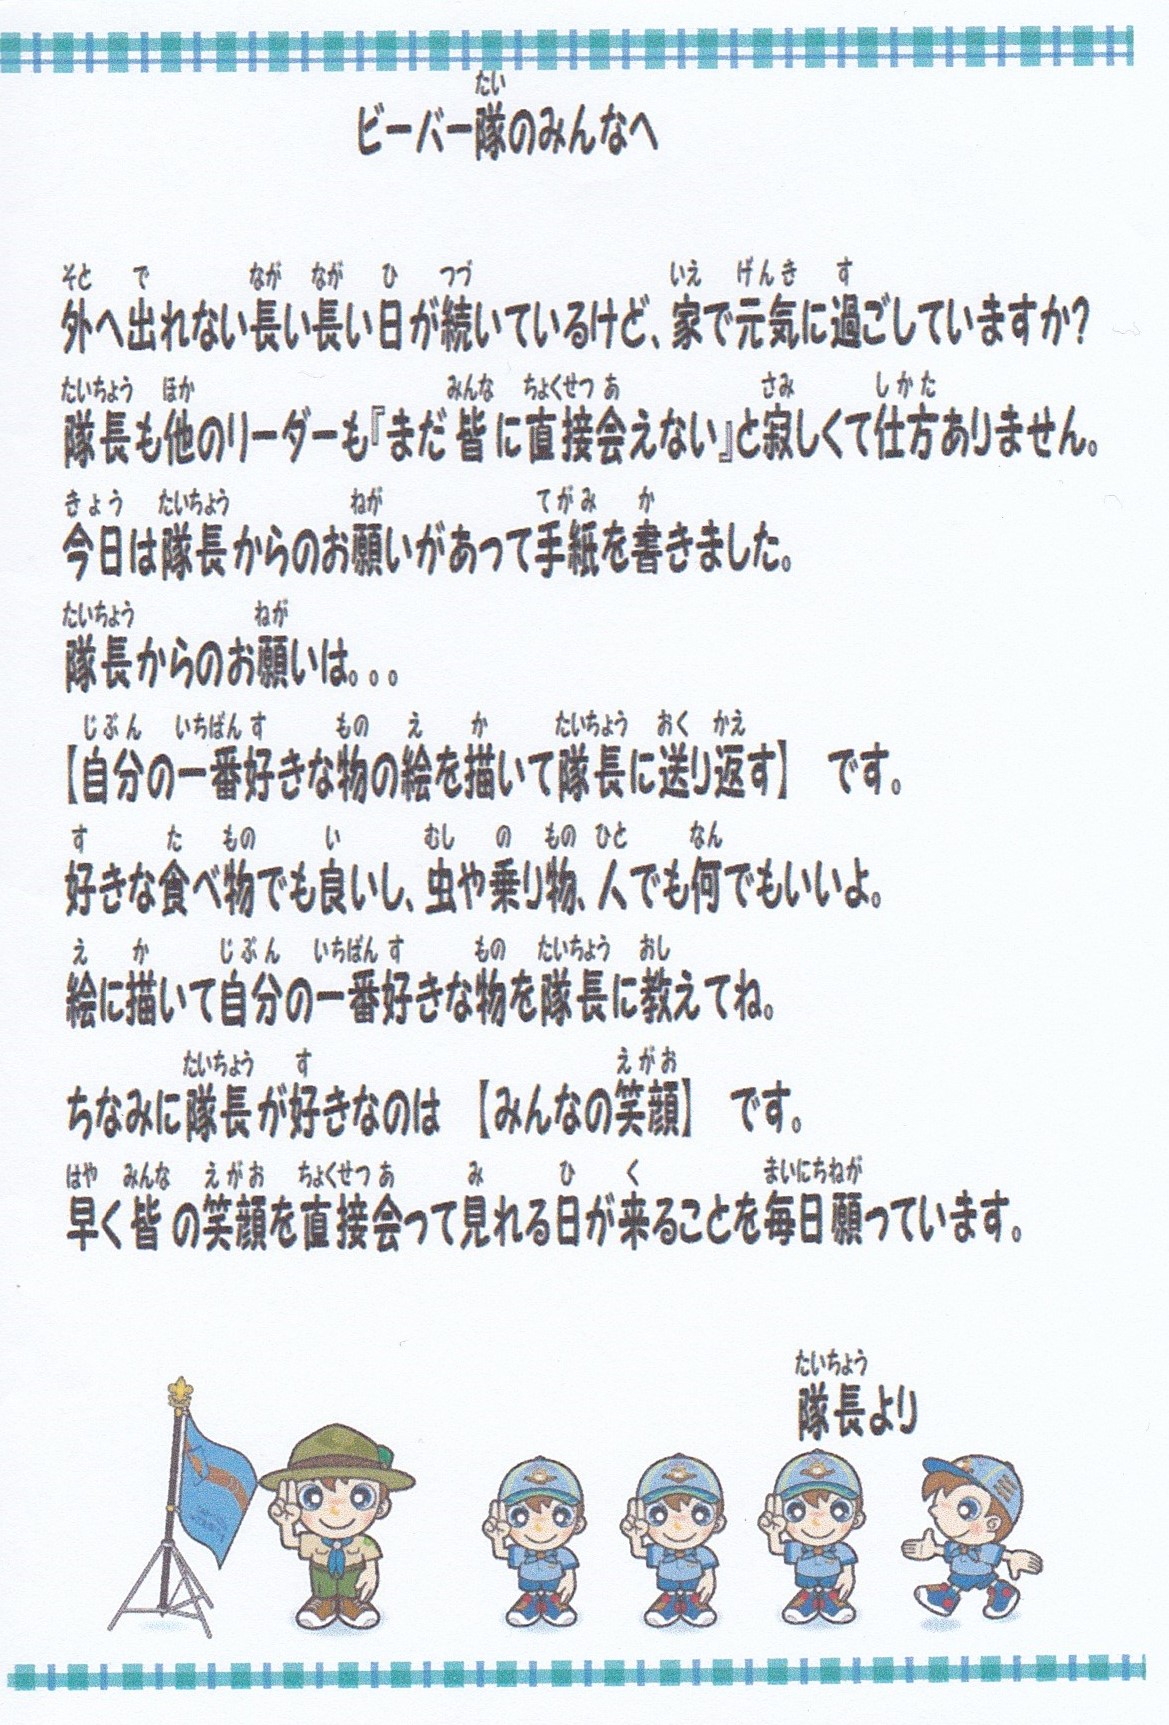 ビーバー隊のみんなへ
外へ出れない長い長い日が続いているけど、家で元気に過ごしていますか?
隊長も他のリーダーも『まだ皆に直接会えない』と寂しくて仕方ありません。
今日は隊長からのお願いがあって手紙を書きました。
隊長からのお願いは。。。
【自分の一番好きな物の絵を描いて隊長に送り返す】　です。
好きな食べ物でも良いし、虫や乗り物、人でも何でもいいよ。
絵に描いて自分の一番好きな物を隊長に教えてね。
ちなみに隊長が好きなのは　【みんなの笑顔】　です。
早く皆の笑顔を直接会って見れる日が来ることを毎日願っています。
隊長より